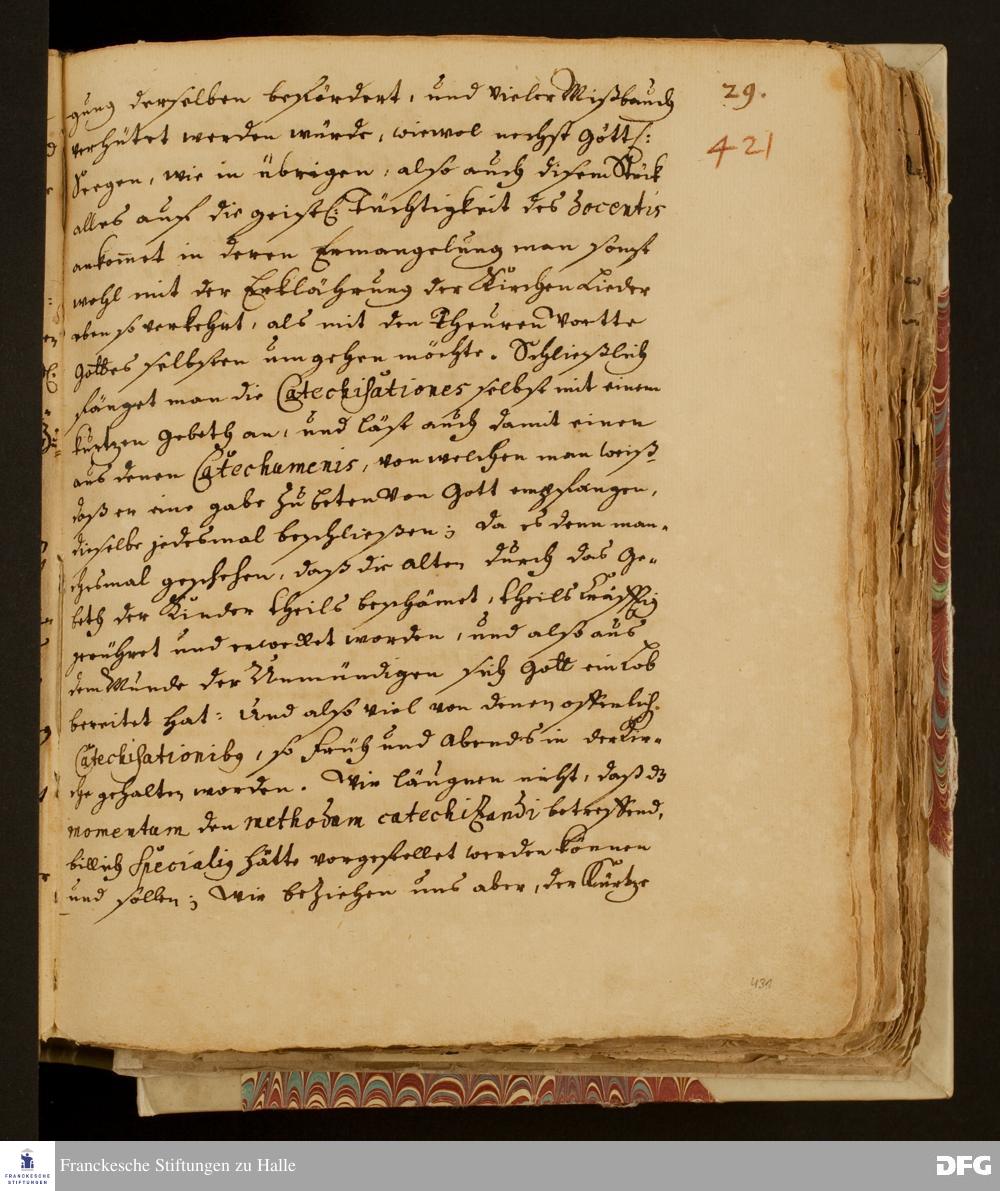 29.
421
gung derselben befördert, und vieler Mißbrauch
verhütet werden würde, wiewol nechst Göttl:
Seegen, wie in übrigen, also auch disem Stück
alles auf die geistl: Tüchtigkeit des Docentis
ankom̅et in deren Ermangelung man sonst
wohl mit der Erklährung der Kirchen Lieder
eben so verkehrt, als mit den Theuren Wortte
Gottes selbsten umgehen möchte. Schließlich
fänget man die Catechisationes selbst mit einem
kurtzen Gebeth an, und läst auch damit einen
aus denen Catechumenis, von welchen man weiß
daß er eine gabe zu beten von Gott empfangen,
dieselbe jedesmal beschließen; Da es denn man-
chesmal geschehen, daß die alten durch das Ge-
beth der Kinder theils beschämet, theils kräfftig
gerühret und erwecket worden, und also aus
dem Munde der Unmündigen sich Gott ein Lob
bereitet hat: Und also viel von denen offentlich.
Catechisationib9, so früh und Abends in der Kir-
che gehalten worden. Wir läugnen nicht, daß dz
momentum den methodum catechizandi betreffend,
billich specialig hätte vorgestellet werden können
und sollen; Wir beziehen uns aber, der Kürtze
431
Franckesche Stiftungen zu Halle
FRANCKESCHE
STIFTUNGEN
DFG